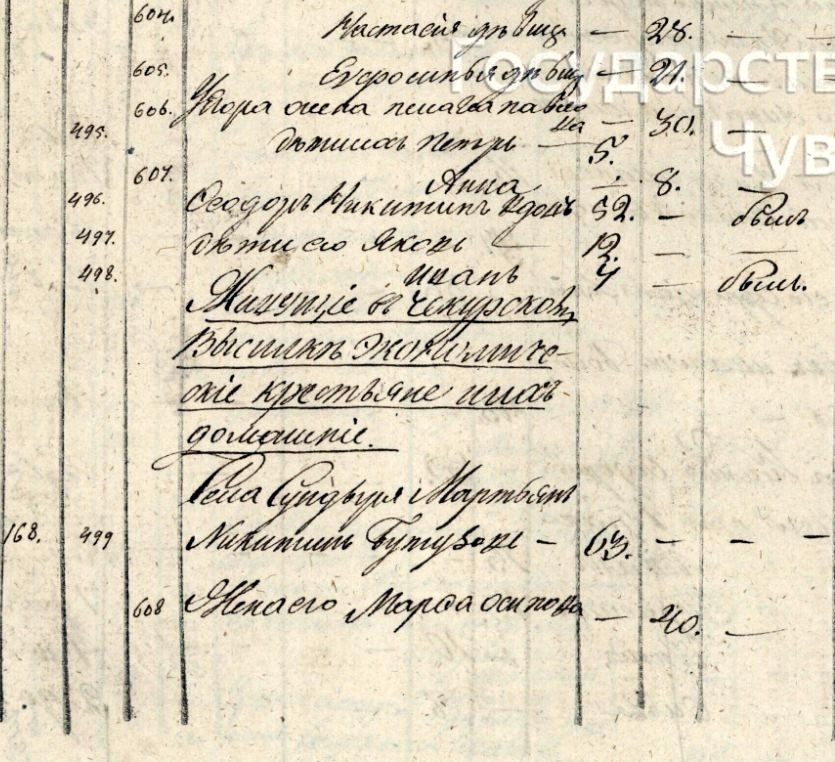 604. Настасия дѣвица — 28. —
605. Евфросинья дѣвица — 21. —
606. Егора жена пелагея павло
495. ва — 30. —
дѣти ихъ Петръ — 5.
607. Анна — 8. —
496. Ѳеодоръ Никитинъ вдовъ 52. — былъ
497. дѣти его Яковъ — 12. — —
498. иванъ 4 — былъ.
Живущіе въ Чекурскомъ
Выселкѣ экономиче-
скіе крестьяне и ихъ
домашніе.
Села Сундыря Мартьянъ
168. 499 Никитинъ Бутузовъ — 63. — — —
608 Жена его Марѳа осипова — 40. —
Государств
Чув